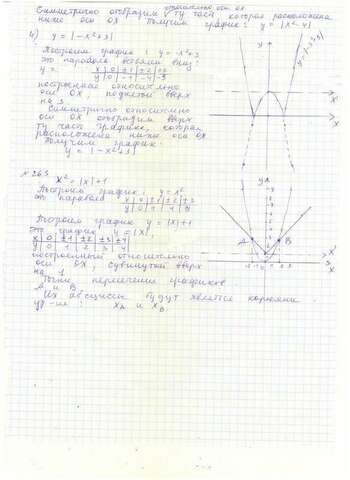 относительно оси ОХ
Симметрично отобразим ту часть которая расположена
ниже оси ОХ. Получим график: y = |x²-4|
4) y = |-x²+3|
Построим график: y = -x²+3
это парабола ветвями вниз:
x | 0 | ±1 | ±2 | ±3
y | 0 | -1 | -4 | -9
построенная относительно
оси ОХ, поднятой вверх
на 3.
Симметрично относительно
оси ОХ отобразим вверх
ту часть графика, которая
расположена ниже оси ОХ
Получим график:
y = |-x²+3|
№ 263
x² = |x|+1
Построим график: y = x²
это парабола
Построим график y = |x|+1
Это график y = |x|
x | 0 | ±1 | ±2 | ±3 | ±4
y | 0 | 1 | 2 | 3 | 4
построенный относительно
оси ОХ, сдвинутой вверх
на 1
Точки пересечения графиков
А и В
Их абсциссы будут являться корнями
ур-ия: x_A и x_B.
y
x'
x
y = |-x²+3|
A
B
x'
x